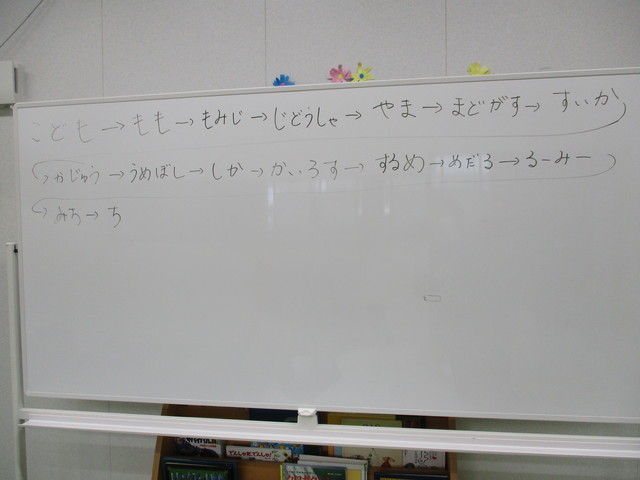 こども→もも→もみじ→じどうしゃ→やま→まどがす→すいか
かじゅう→うめぼし→しか→かいろす→するめ→めだる→るーみー
みち→ち